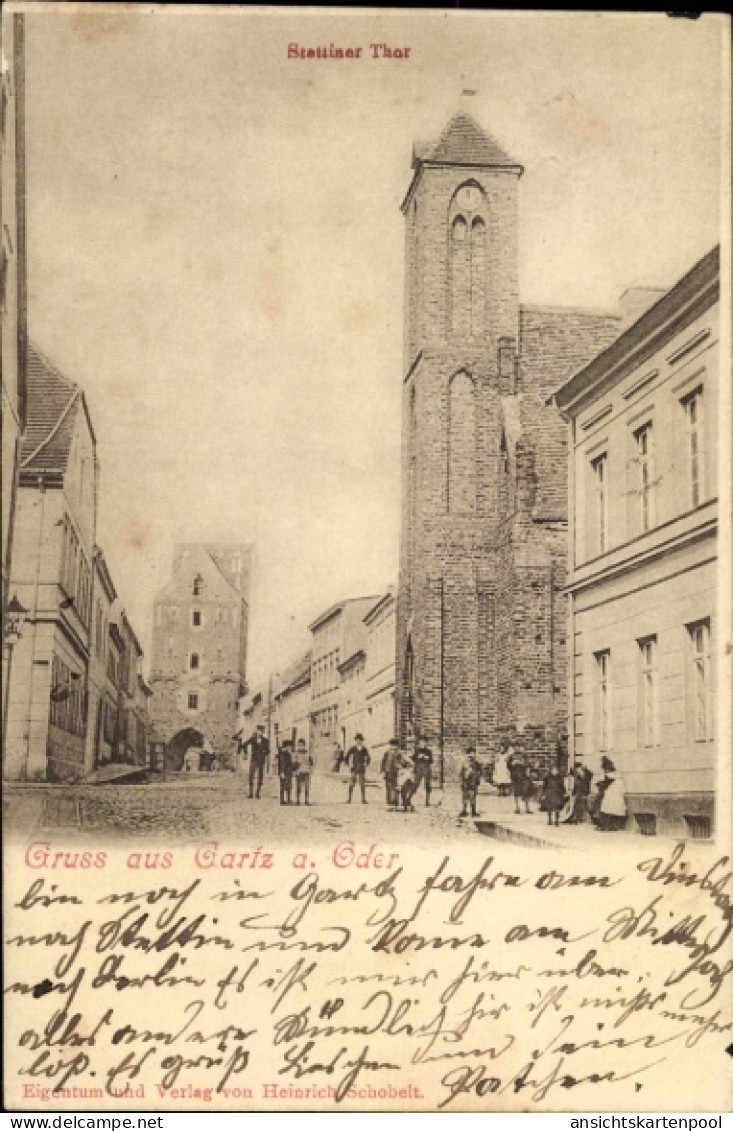 Stettiner Thor
Gruss aus Gartz a. Oder
bin noch in Gartz fahre am Dinstag
nach Stettin und kome am Mittwoch
nach Berlin Es ist mir hier über.
alles andere Mündlich hir ist nichts mehr
loß. Es grüß Lieschen und dein
Patchen.
Eigentum und Verlag von Heinrich Schobelt.
ansichtskartenpool